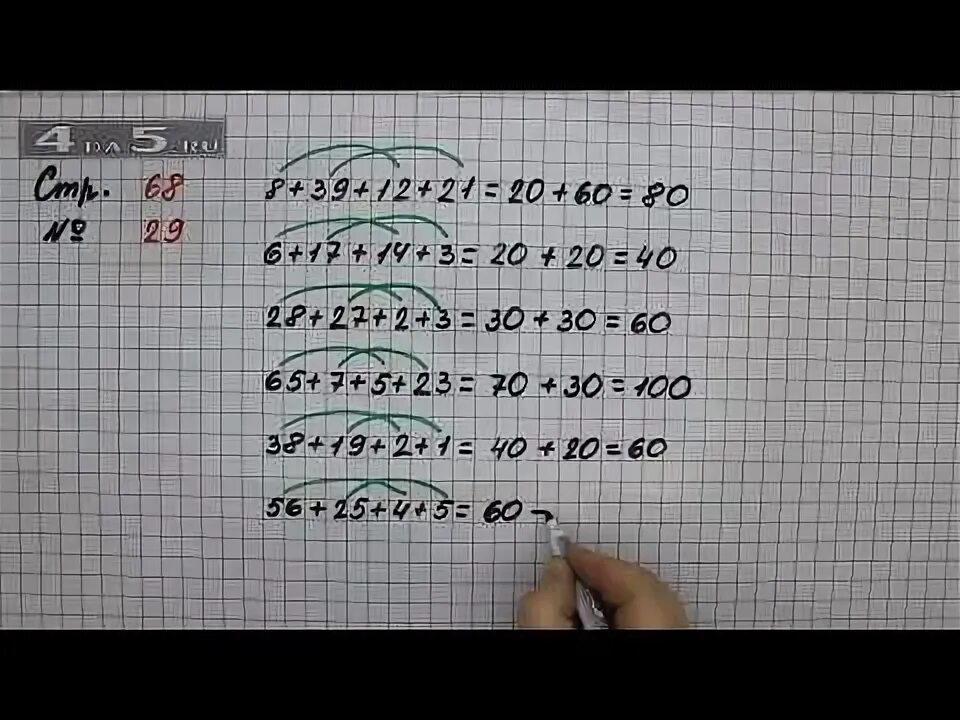 4 на 5.RU
Стр. 68
№ 29
8+39+12+21=20+60=80
6+17+14+3=20+20=40
28+27+2+3=30+30=60
65+7+5+23=70+30=100
38+19+2+1=40+20=60
56+25+4+5=60